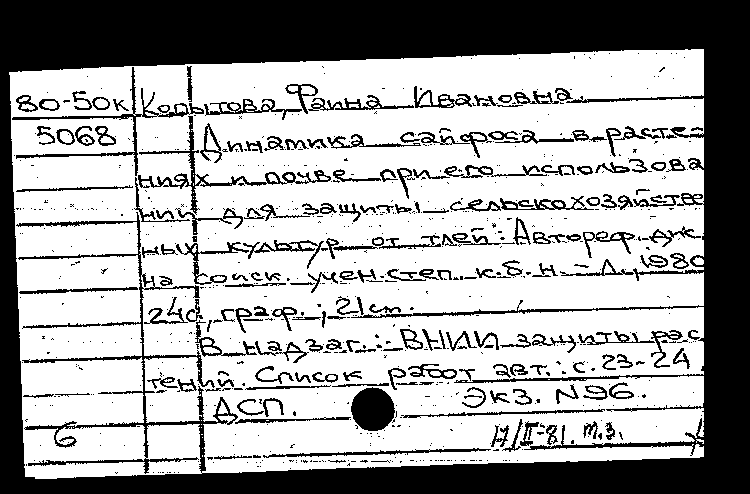 80-50к Копытова, Фаина Ивановна.
5068 Динамика сайфоса в расте-
ниях и почве при его использова
нии для защиты сельскохозяйстве
ных культур от тлей: Автореф. дис.
на соиск. учен. степ. к.б.н. - Л., 1980
24с., граф.; 21 см.
В надзаг.: ВНИИ защиты рас
тений. Список работ авт.: с. 23-24.
ДСП. Экз. N96.
6 17/II-81. т.з.